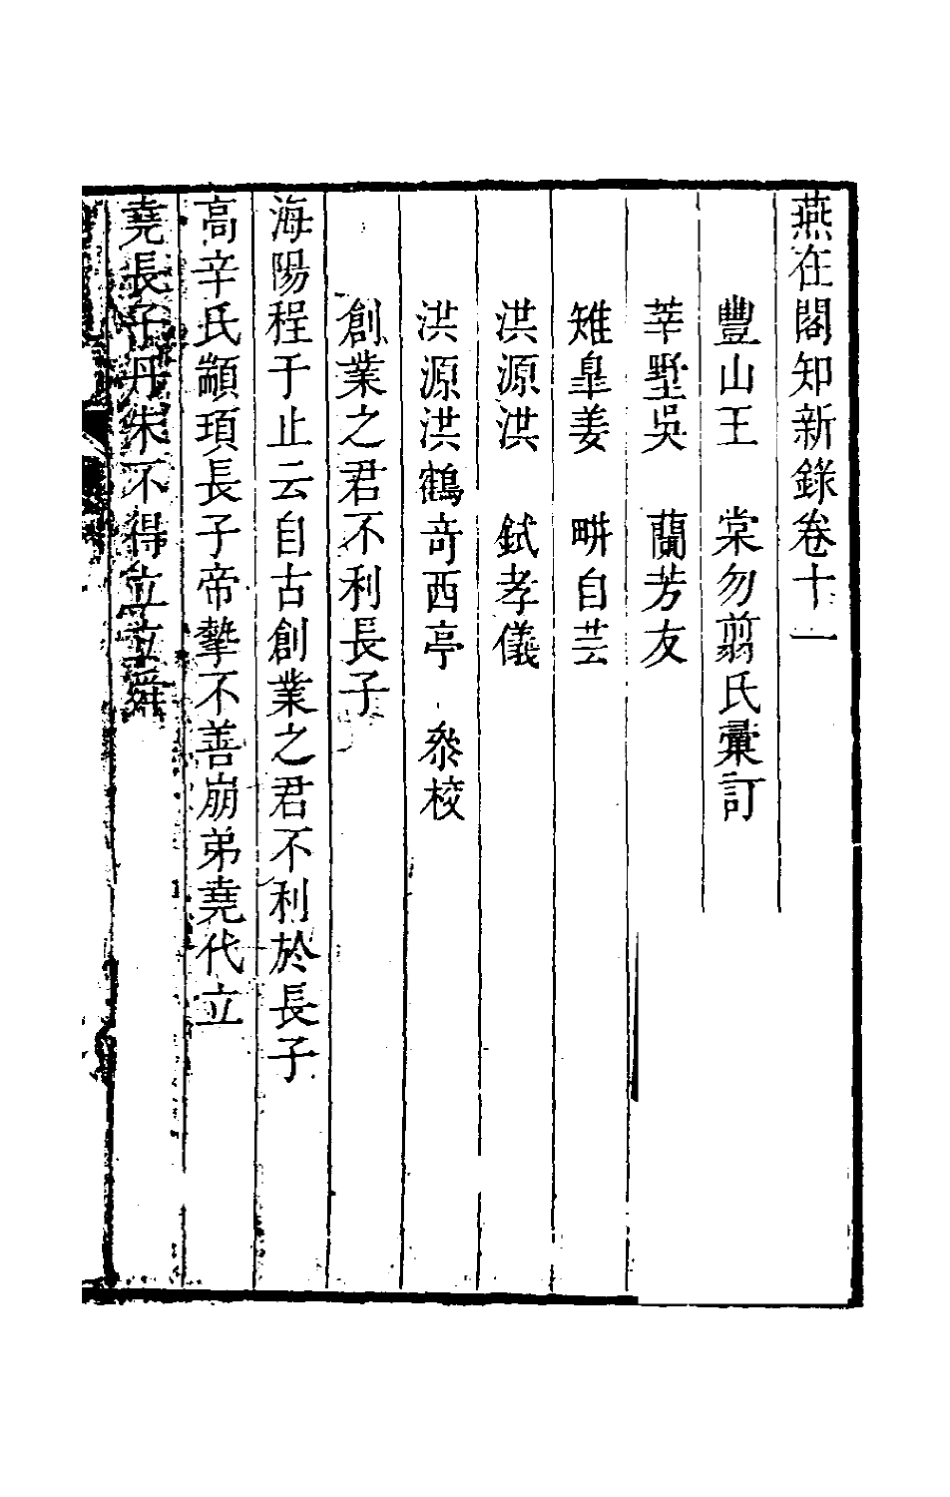 燕在閣知新錄卷十一
豐山王 棠勿翦氏彙訂
莘墅吳 蘭芳友
雉臯姜 畊自芸
洪源洪 鉽孝儀
洪源洪鶴奇西亭 叅校
創業之君不利長子
海陽程于止云自古創業之君不利於長子
高辛氏顓頊長子帝摯不善崩弟堯代立
堯長子丹朱不得立立舜